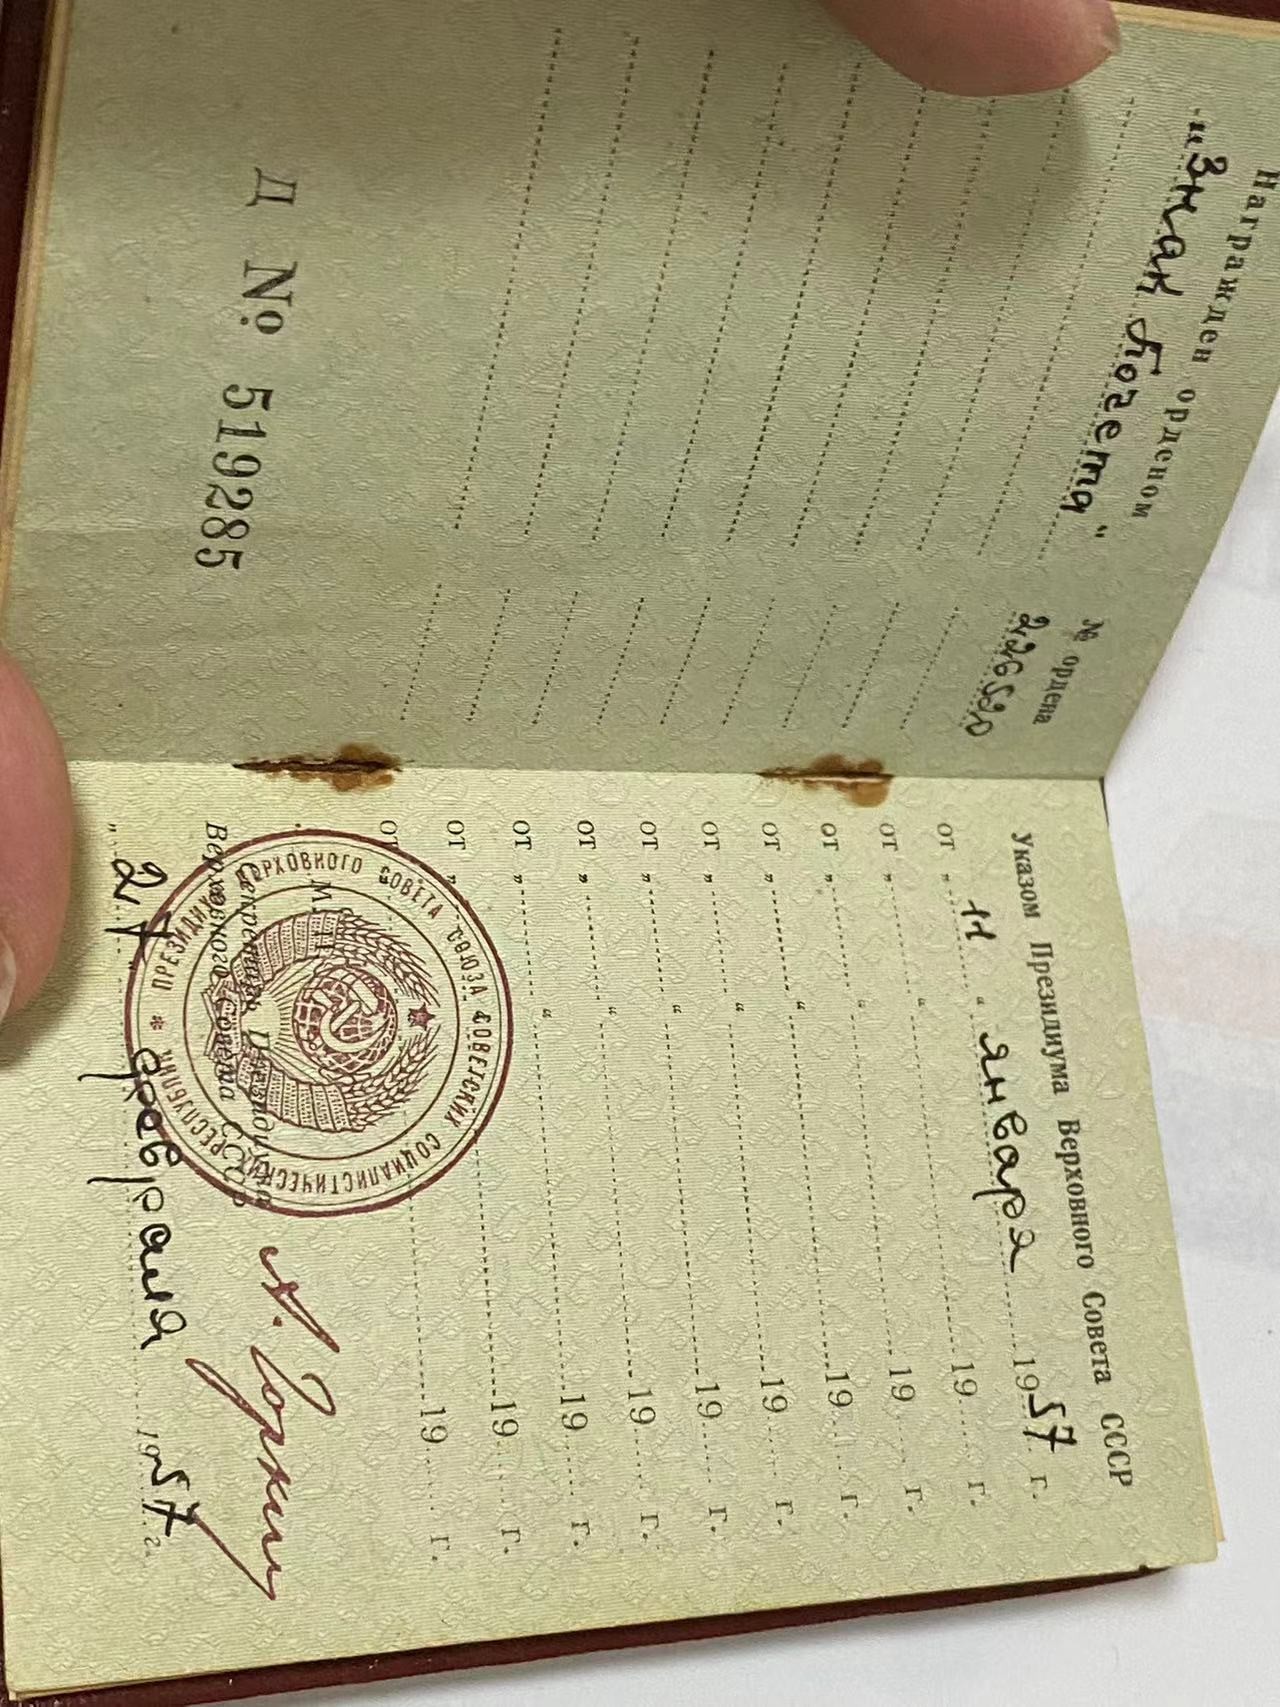 Награжден орденом
№ ордена
„Знак Почета“
226520
Д № 519285
Указом Президиума Верховного Совета СССР
от „11“ января 1957 г.
от „ “ 19 г.
от „ “ 19 г.
от „ “ 19 г.
от „ “ 19 г.
от „ “ 19 г.
от „ “ 19 г.
от „ “ 19 г.
от „ “ 19 г.
от „ 19 г.
М. П.
Секретарь Президиума
Верховного Совета СССР
А. Горкин
„27“ февраля 1957 г.
ПРЕЗИДИУМ ВЕРХОВНОГО СОВЕТА СОЮЗА СОВЕТСКИХ СОЦИАЛИСТИЧЕСКИХ РЕСПУБЛИК